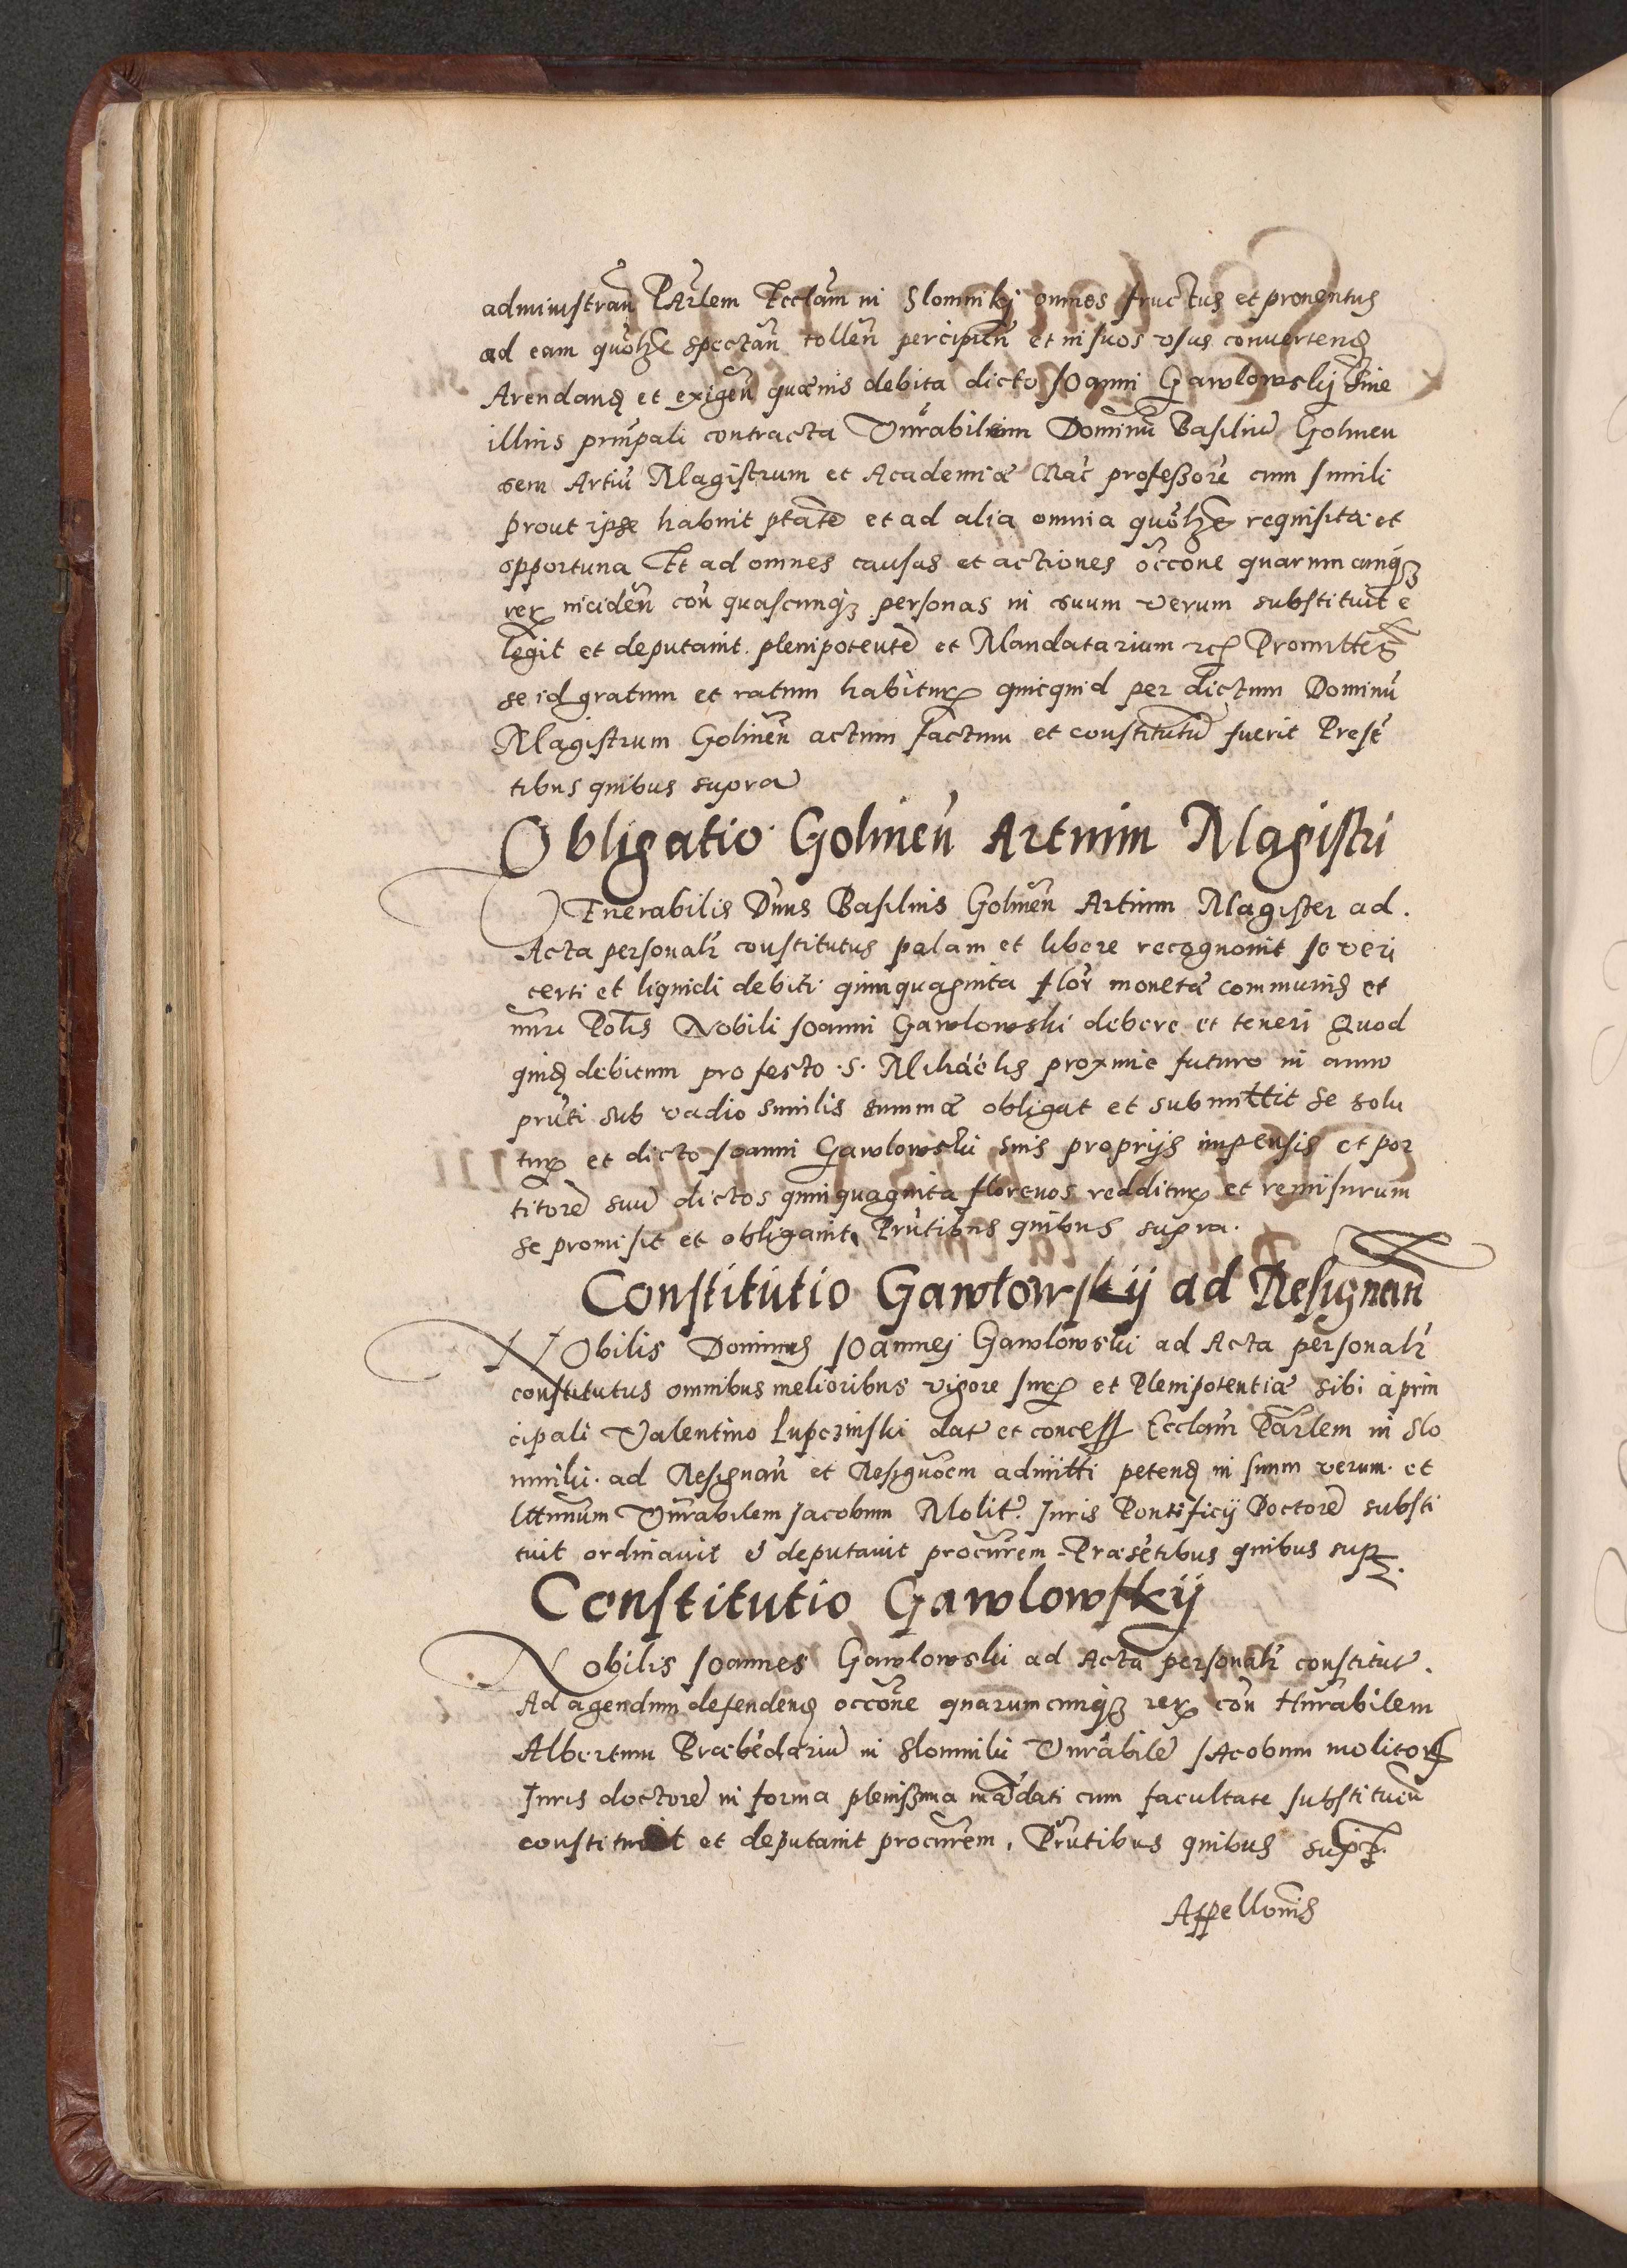 administrañ PArlem Ecclam in Slomnikj omnes fructus et prouentus
ad eam spectañ tolleñ percipieñ et in suos vsus conuertend
Arendand et exigeñ quæuis debita dicto JOanni Gawlowskij siue
illius principali contracta Vnrabilem Dominũ Basiliũ Golinen
sem Artiũ Magistrum et Academiæ Crac professorẽ cum simili
prout ipse habuit ptãtẽ et ad alia omnia requisita et
opportuna Et ad omnes causas et actiones occõne quarumcunqȝ
rer incideñ coñ quascunqȝ personas in suum verum substituit e
legit et deputauit plenipotentẽ et Mandatarium Promittens
se id gratum et ratum habitur quicquid per dictum Dominũ
Magistrum Golineñ actum factum et constitutũ fuerit Presẽ
tibus quibus supra
Obligatio Golineñ Artium Magistri
VEnerabilis Dñus Basilius Golineñ Artium Magister ad.
Acta personalr constitutus palam et libere recognouit se veri
certi et liquidi debiti quinquaginta flor monetæ communis et
nũri Polis Nobili JOanni Gawlowski debere et teneri Quod
quid debitum pro festo .S. Mihaelis proxime futuro in anno
prñti sub vadio similis summæ obligat et submittit se solu
tur et dicto Joanni Gawlowski suis proprijs impensis et por
titorẽ suũ dictos quinquaginta florenos redditur et remisurum
se promisit et obligauit, Prñtibus quibus supra.
Constitutio Gawlowskij ad Resignañ
NObilis Dominus JOannes Gawlowski ad Acta personalr
constitutus omnibus melioribus vigore et Plenipotentiæ sibi à prin
cipali Valentino Lupczinski dat et concess Ecclam Parlem in Slo
mniki. ad Resignañ et Resignõem admitti petend in suum verum et
lttimum Vnrabilem Jacobum Molit. Juris Pontificij Doctorẽ substi
tuit ordinauit & deputauit procurem - Præsẽtibus quibus sup.
Constitutio Gawlowskij
Nobilis JOannes Gawlowski ad Acta personalr constitut.
Ad agendum defendend occõne quarumcunqȝ rer coñ Hnrabilem
Albertum Præbẽdariũ in Slomniki Vnrabilẽ JAcobum molitor
Juris doctorẽ in forma plenissima mãdati cum facultate substitueñ
constituit et deputauit procurem. Prñtibus quibus sup.
Appellonis